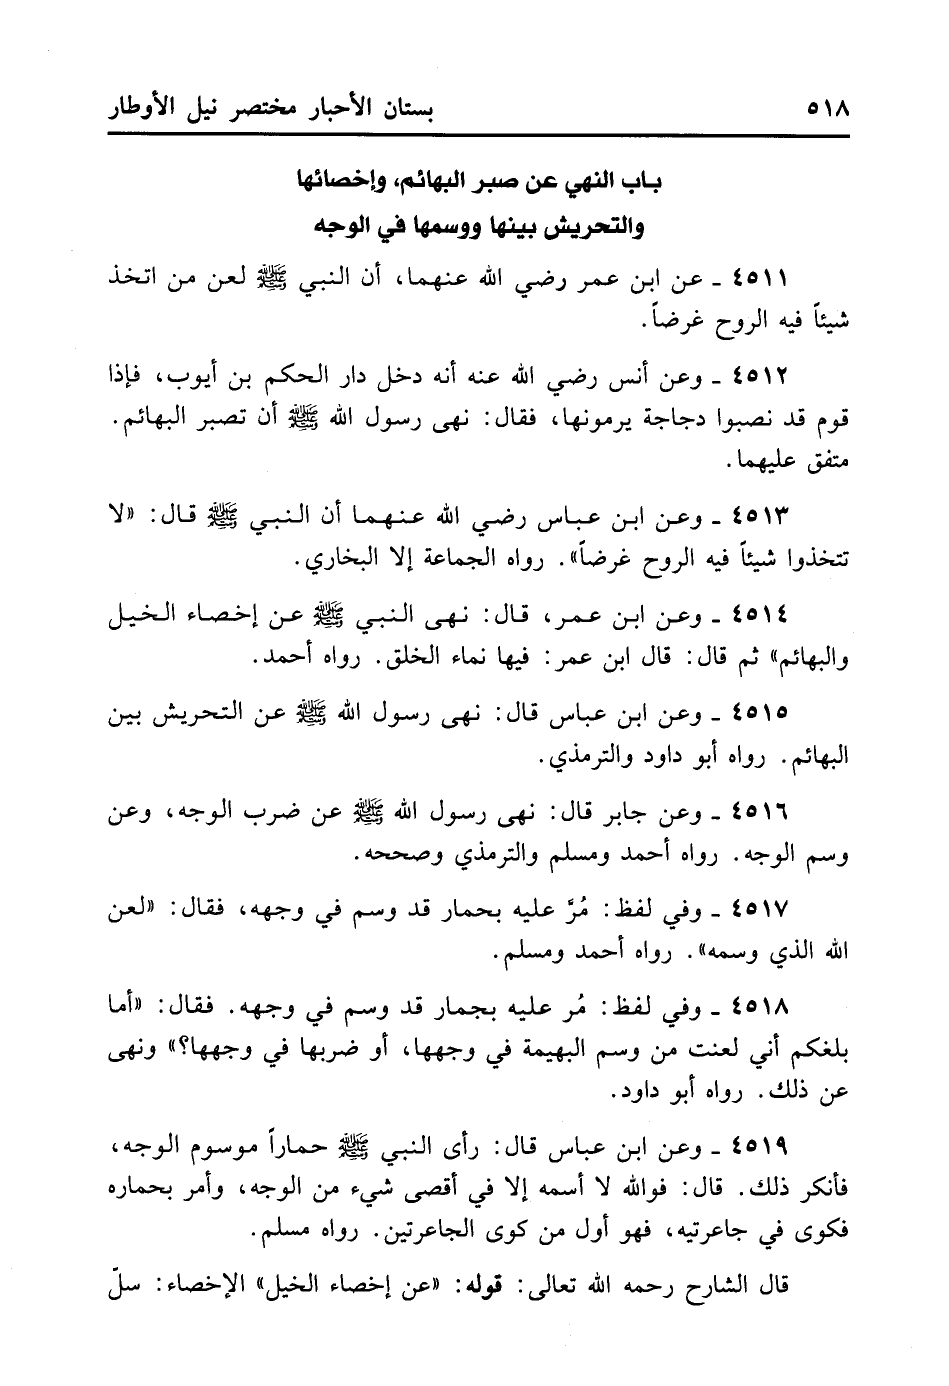 ٥١٨ بستان الأحبار مختصر نيل الأوطار
باب النهي عن صبر البهائم، وإخصائها
والتحريش بينها ووسمها في الوجه
٤٥١١ ـ عن ابن عمر رضي الله عنهما، أن النبي ﷺ لعن من اتخذ
شيئاً فيه الروح غرضاً.
٤٥١٢ ـ وعن أنس رضي الله عنه أنه دخل دار الحكم بن أيوب، فإذا
قوم قد نصبوا دجاجة يرمونها، فقال: نهى رسول الله ﷺ أن تصبر البهائم.
متفق عليهما.
٤٥١٣ ـ وعن ابن عباس رضي الله عنهما أن النبي ﷺ قال: «لا
تتخذوا شيئاً فيه الروح غرضاً». رواه الجماعة إلا البخاري.
٤٥١٤ ـ وعن ابن عمر، قال: نهى النبي ﷺ عن إخصاء الخيل
والبهائم» ثم قال: قال ابن عمر: فيها نماء الخلق. رواه أحمد.
٤٥١٥ ـ وعن ابن عباس قال: نهى رسول الله ﷺ عن التحريش بين
البهائم. رواه أبو داود والترمذي.
٤٥١٦ ـ وعن جابر قال: نهى رسول الله ﷺ عن ضرب الوجه، وعن
وسم الوجه. رواه أحمد ومسلم والترمذي وصححه.
٤٥١٧ ـ وفي لفظ: مُرَّ عليه بحمار قد وسم في وجهه، فقال: «لعن
الله الذي وسمه». رواه أحمد ومسلم.
٤٥١٨ ـ وفي لفظ: مُر عليه بجمار قد وسم في وجهه. فقال: «أما
بلغكم أني لعنت من وسم البهيمة في وجهها، أو ضربها في وجهها؟» ونهى
عن ذلك. رواه أبو داود.
٤٥١٩ ـ وعن ابن عباس قال: رأى النبي ﷺ حماراً موسوم الوجه،
فأنكر ذلك. قال: فوالله لا أسمه إلا في أقصى شيء من الوجه، وأمر بحماره
فكوى في جاعرتيه، فهو أول من كوى الجاعرتين. رواه مسلم.
قال الشارح رحمه الله تعالى: قوله: «عن إخصاء الخيل» الإخصاء: سلّ